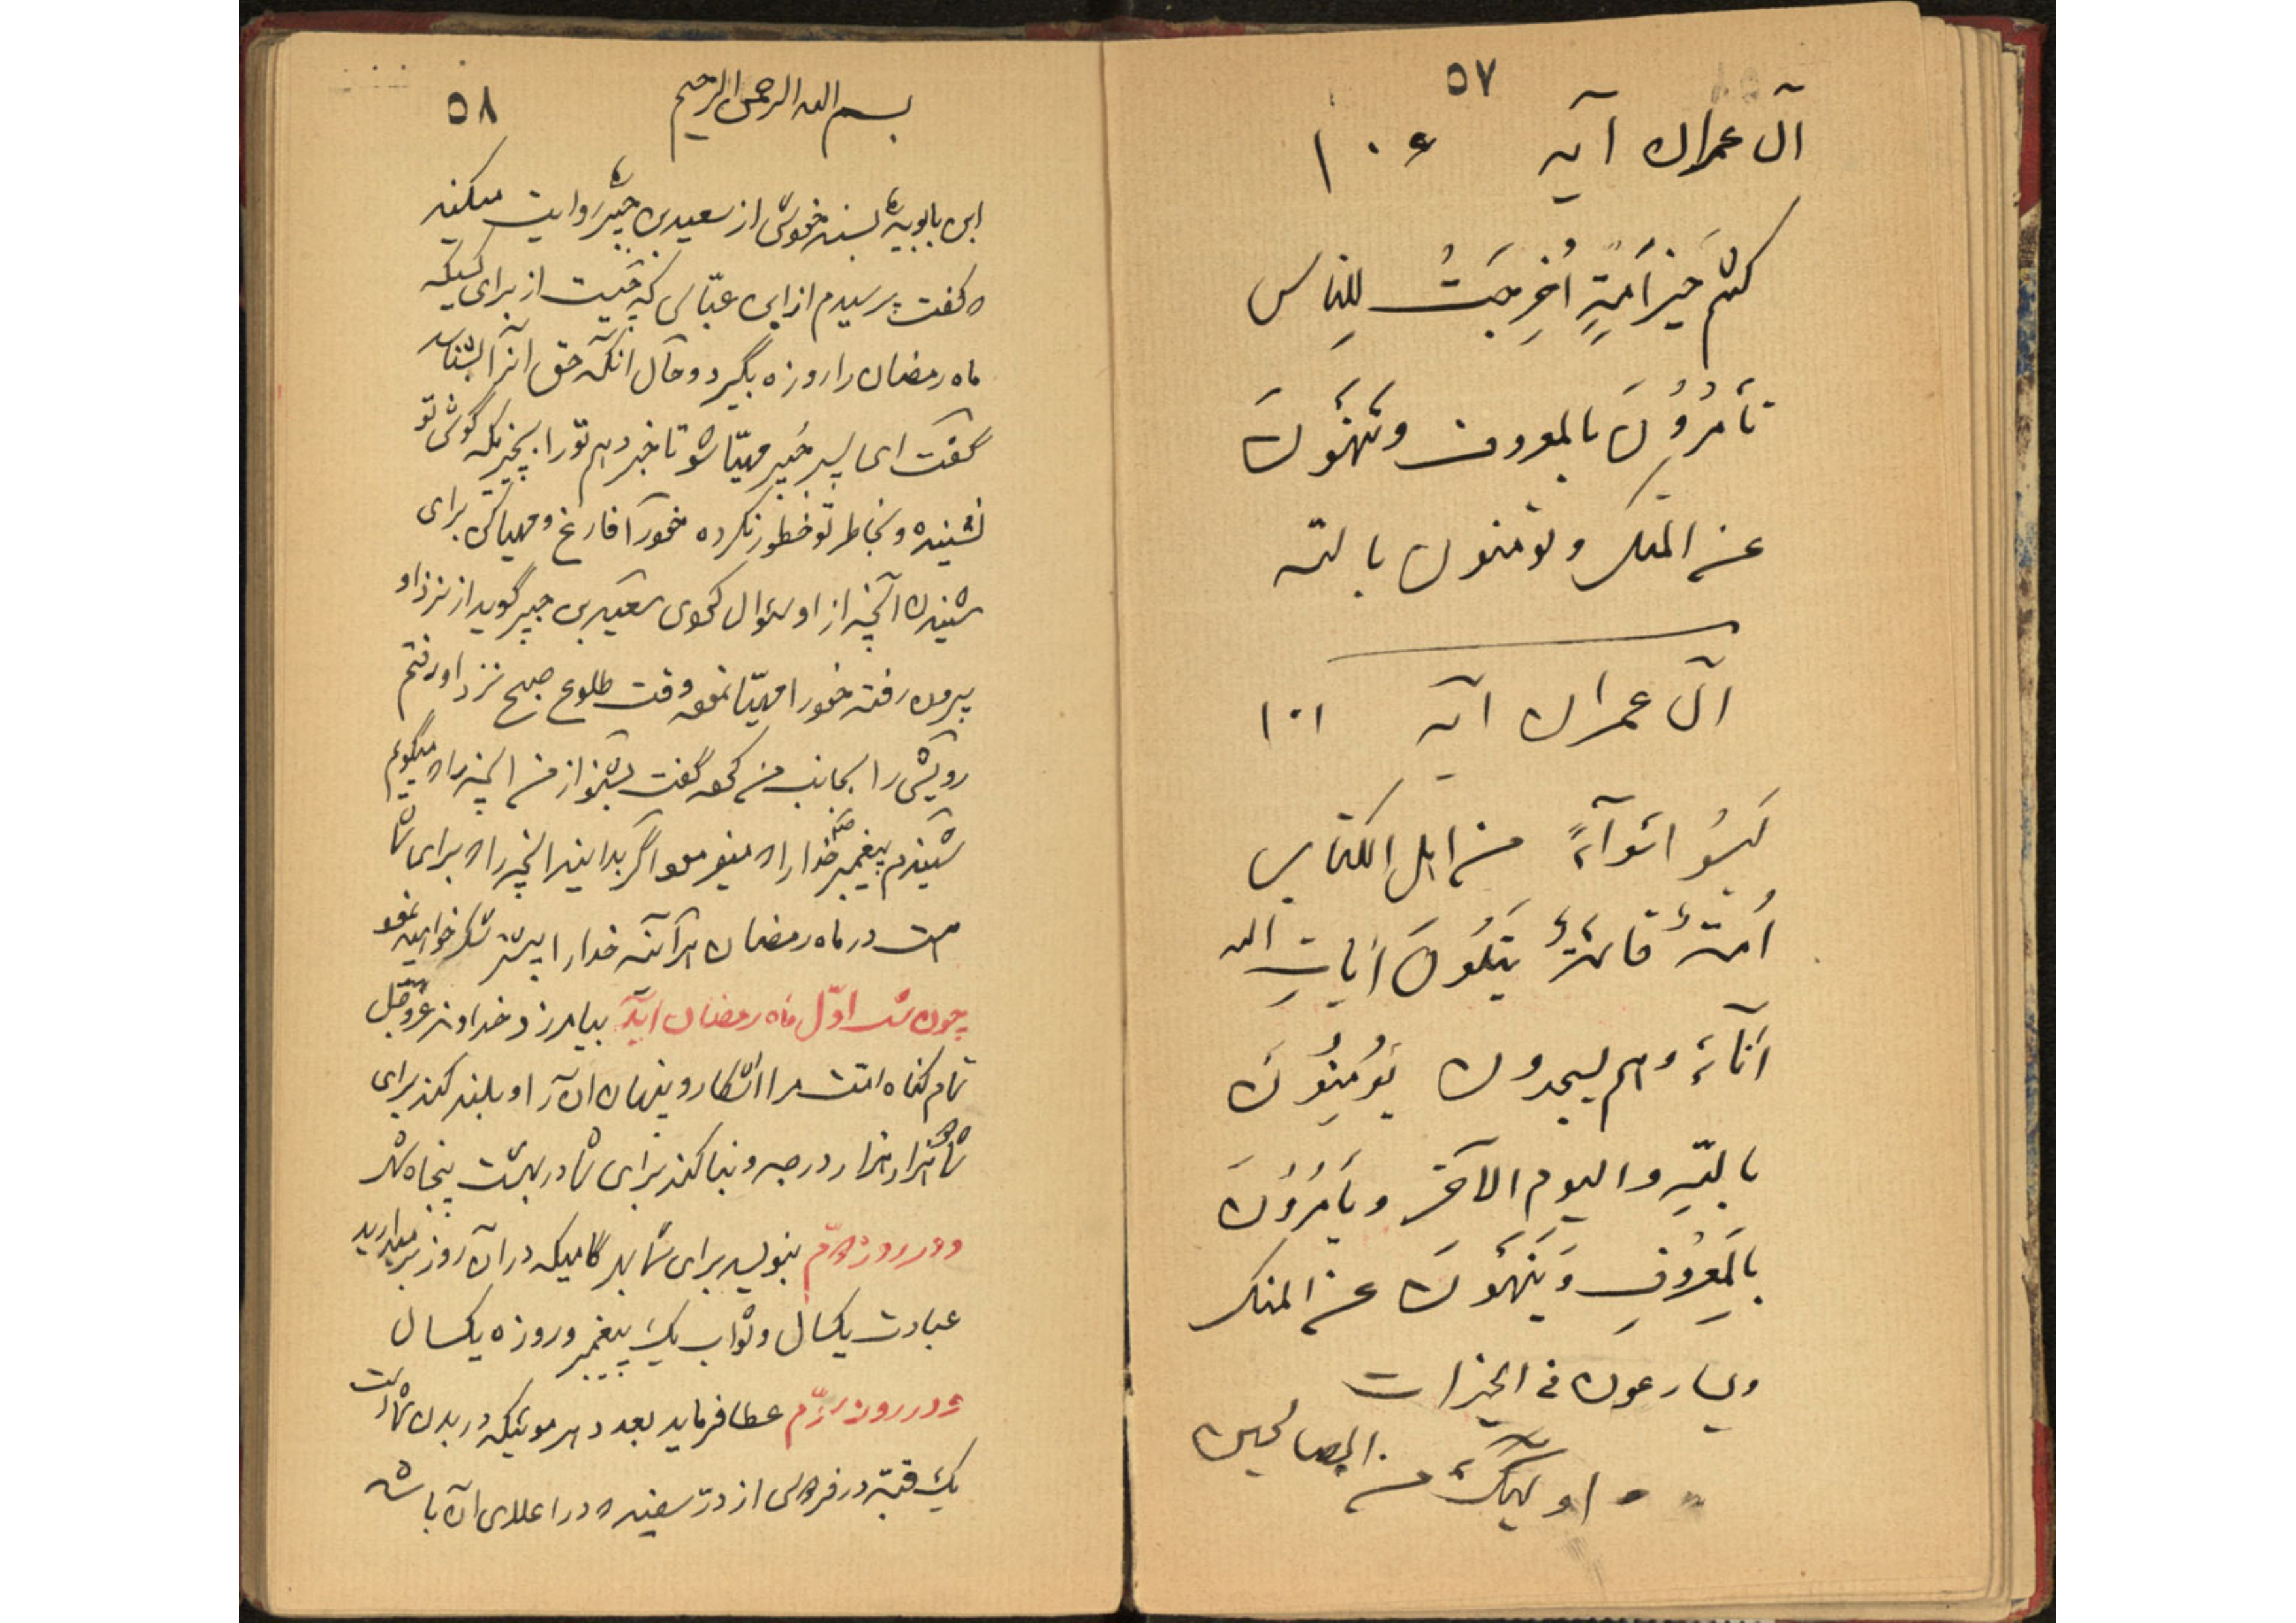 ٥٧
آل عمران آیه ١٠۶
کنتم خیرَ اُمةٍ اُخرِجَتُ لِلناس
تأمُرُونَ بالمعروف وتَنهَوْنَ
عن المنکر وتؤمنون بالله
آل عمران آیه ١٠١
لَیسُوا سَوآءً من اهل الکتاب
اُمةٌ قائمةٌ یَتلُونَ آیاتِ الله
آناءَ وهم یسجدون یُؤمِنُونَ
باللهِ والیوم الآخر ویأمُرُونَ
بالمَعرُوفِ وَیَنهَونَ عن المنکر
ویسارعون فی الخیرات
اولئِکَ من الصالحین
٥٨
بسم الله الرحمن الرحیم
ابن بابویه بسند خودش از سعید بن جبیر روایت میکند
که گفت پرسیدم از ابن عبّاس که چیست از برای کسیکه
ماه رمضان را روزه بگیرد و حال آنکه حق آنرا بشناسد
گفت ای پسر جُبیر مهیّا شو تا خبر دهم تو را بچیزیکه گوش تو
نشنیده و بخاطر تو خطور نکرده خود را فارغ و مهیا کن برای
شنیدن آنچه از او سئوال کردی سعید بن جبیر گوید از نزد او
بیرون رفته خود را مهیّا نموده وقت طلوع صبح نزد او رفتم
رویش را بجانب من کرده گفت بشنو از من آنچه را که میگویم
شنیدم پیغمبر خدا را که میفرمود اگر بدانید آنچه را که برای شما
است در ماه رمضان هر آینه خدا را بیشتر شکر خواهید نمود
چون شب اوّل ماه رمضان آید بیامرزد خداوند عزّوجّل
تمام گناه امّت مرا آشکار و پنهان آن را و بلند کند برای
شما هزار هزار درجه و بنا کند برای شما در بهشت پنجاه شهر
و در روز دوّم بنویسد برای شما بهر گامیکه در آن روز برمیدارید
عبادت یکسال و ثواب یک پیغمبر و روزه یکسال
و در روز سوّم عطا فرماید بعدد هر موئیکه در بدن شما است
یک قبّه در فردوس از درّ سفید که در اعلای آن باشد